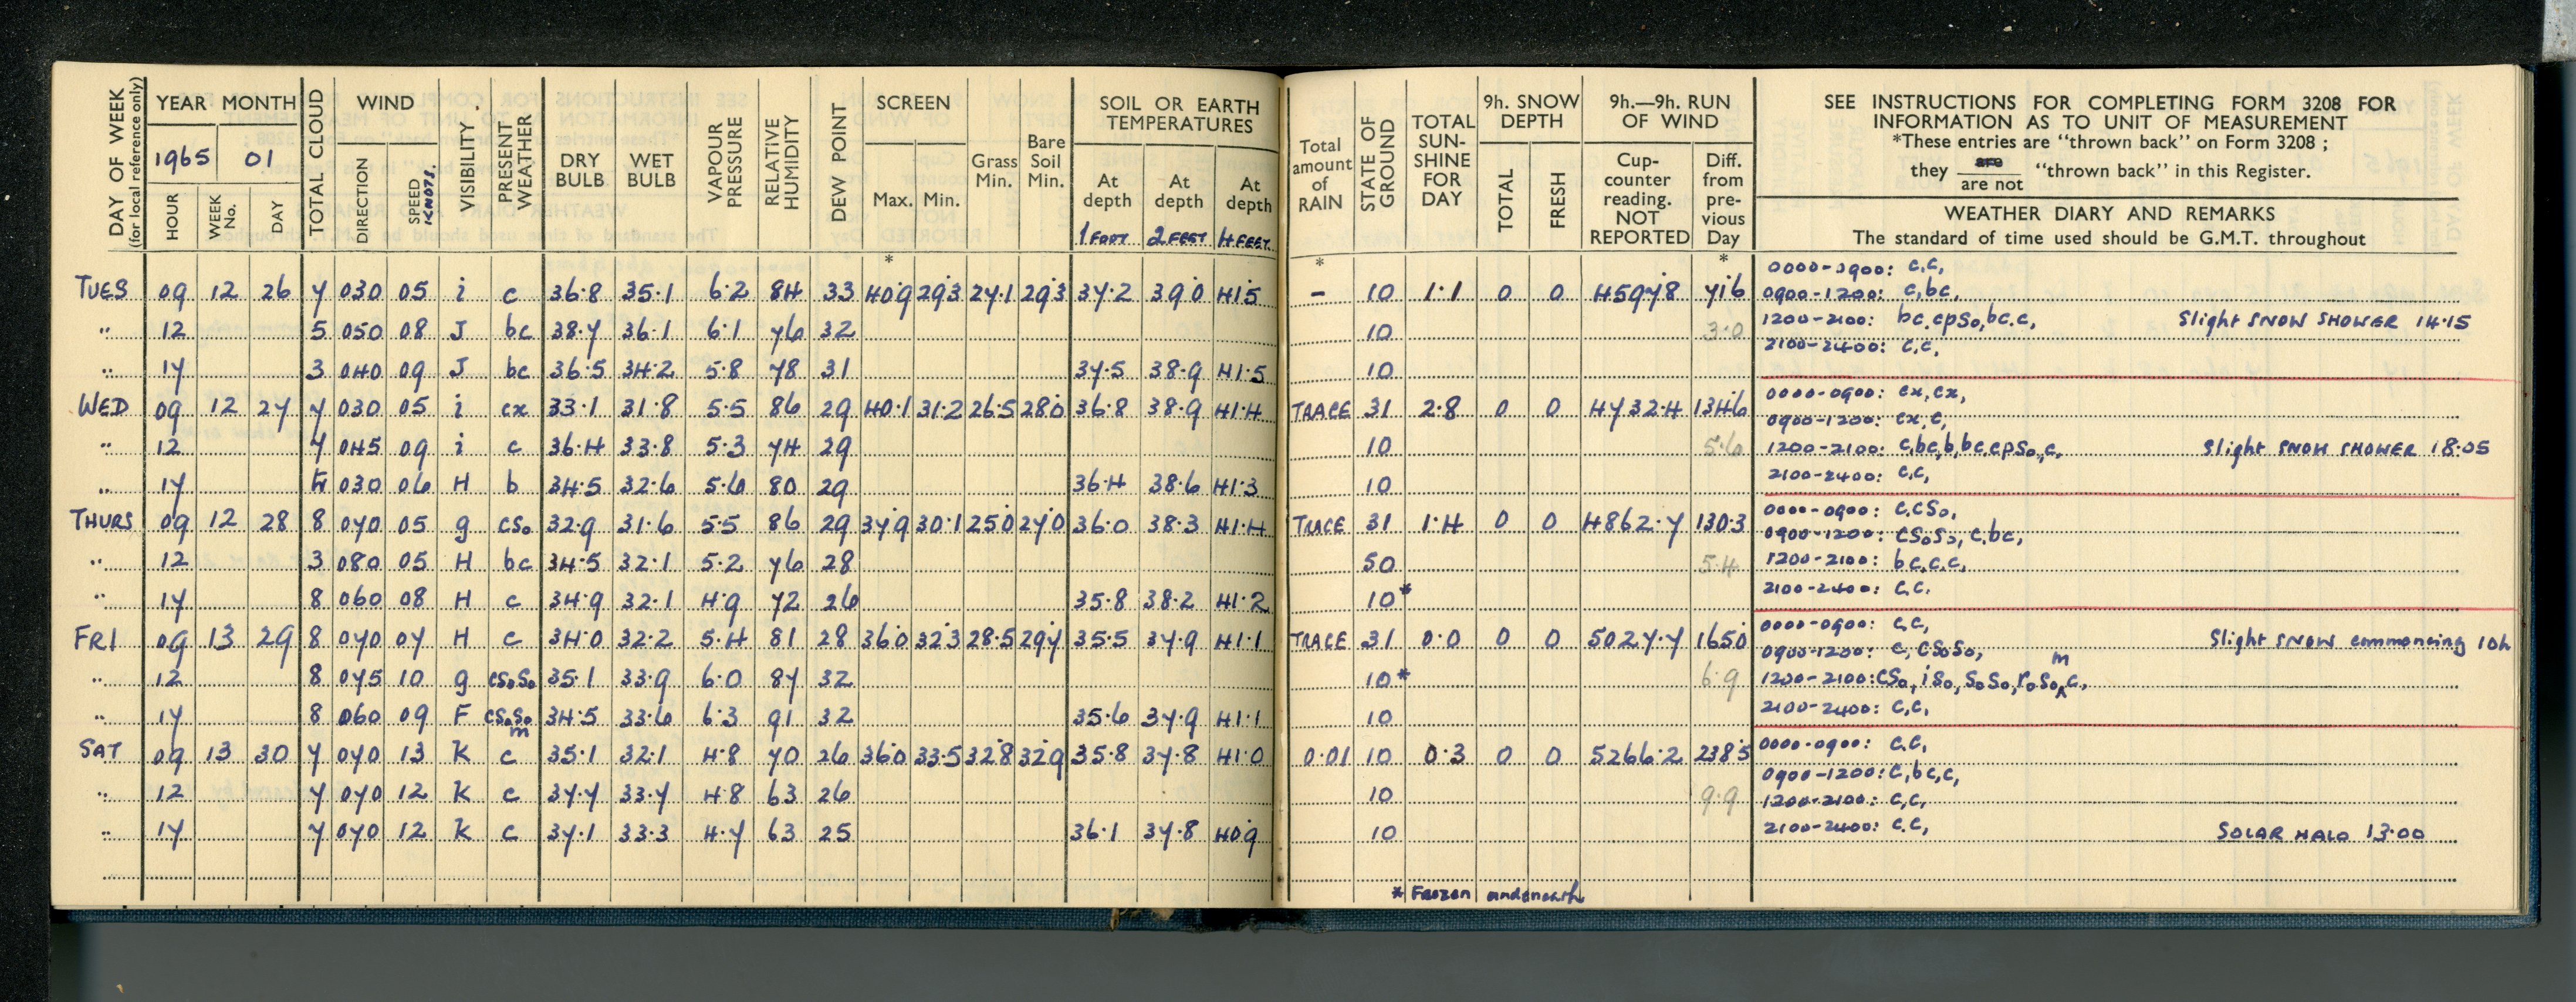 DAY OF WEEK (for local reference only)
YEAR MONTH
1965 01
HOUR WEEK No. DAY
TOTAL CLOUD
WIND
DIRECTION SPEED KNOTS.
VISIBILITY
PRESENT WEATHER
DRY BULB
WET BULB
VAPOUR PRESSURE
RELATIVE HUMIDITY
DEW POINT
SCREEN
Max. Min.
*
Grass Min.
Bare Soil Min.
SOIL OR EARTH TEMPERATURES
At depth At depth At depth
1 FOOT 2 FEET 4 FEET
Total amount of RAIN
*
STATE OF GROUND
TOTAL SUN-SHINE FOR DAY
9h. SNOW DEPTH
TOTAL FRESH
9h.—9h. RUN OF WIND
Cup-counter reading. NOT REPORTED
Diff. from pre-vious Day
*
SEE INSTRUCTIONS FOR COMPLETING FORM 3208 FOR
INFORMATION AS TO UNIT OF MEASUREMENT
*These entries are "thrown back" on Form 3208 ;
they are / are not "thrown back" in this Register.
WEATHER DIARY AND REMARKS
The standard of time used should be G.M.T. throughout
TUES 09 12 26 7 030 05 i c 36.8 35.1 6.2 84 33 40.9 29.3 27.1 29.3 37.2 39.0 41.5 - 10 1.1 0 0 4597.8 71.6
" 12 5 050 08 J bc 38.7 36.1 6.1 76 32 10 3.0
" 17 3 040 09 J bc 36.5 34.2 5.8 78 31 37.5 38.9 41.5 10
0000-0900: c,c,
0900-1200: c,bc,
1200-2100: bc,cpSo,bc.c, Slight SNOW SHOWER 14.15
2100-2400: c,c,
WED 09 12 27 7 030 05 i cx 33.1 31.8 5.5 86 29 40.1 31.2 26.5 28.0 36.8 38.9 41.4 TRACE 31 2.8 0 0 4732.4 134.6
" 12 7 045 09 i c 36.4 33.8 5.3 74 29 10 5.6
" 17 030 06 H b 34.5 32.6 5.6 80 29 36.4 38.6 41.3 10
0000-0900: cx,cx,
0900-1200: cx,c,
1200-2100: c,bc,b,bc,cpSo,c, Slight SNOW SHOWER 18.05
2100-2400: c,c,
THURS 09 12 28 8 070 05 g cSo 32.9 31.6 5.5 86 29 37.9 30.1 25.0 27.0 36.0 38.3 41.4 TRACE 31 1.4 0 0 4862.7 130.3
" 12 3 080 05 H bc 34.5 32.1 5.2 76 28 50 5.4
" 17 8 060 08 H c 34.9 32.1 4.9 72 26 35.8 38.2 41.2 10*
0000-0900: c,cSo,
0900-1200: cSoSo, c,bc,
1200-2100: bc,c.c,
2100-2400: c,c.
FRI 09 13 29 8 070 07 H c 34.0 32.2 5.4 81 28 36.0 32.3 28.5 29.7 35.5 37.9 41.1 TRACE 31 0.0 0 0 5027.7 165.0
" 12 8 075 10 g cSoSo 35.1 33.9 6.0 87 32 10* 6.9
" 17 8 060 09 F cSoSo m 34.5 33.6 6.3 91 32 35.6 37.9 41.1 10
0000-0900: c,c, Slight SNOW commencing 10h
0900-1200: c, cSoSo,
1200-2100: cSo, iSo, SoSo, roSo m c,
2100-2400: c,c,
SAT 09 13 30 7 070 13 K c 35.1 32.1 4.8 70 26 36.0 33.5 32.8 32.9 35.8 37.8 41.0 0.01 10 0.3 0 0 5266.2 238.5
" 12 7 070 12 K c 37.7 33.7 4.8 63 26 10 9.9
" 17 7 070 12 K c 37.1 33.3 4.7 63 25 36.1 37.8 40.9 10
0000-0900: c,c,
0900-1200: c,bc,c,
1200-2100: c,c,
2100-2400: c.c, SOLAR HALO 13.00
* Frozen underneath